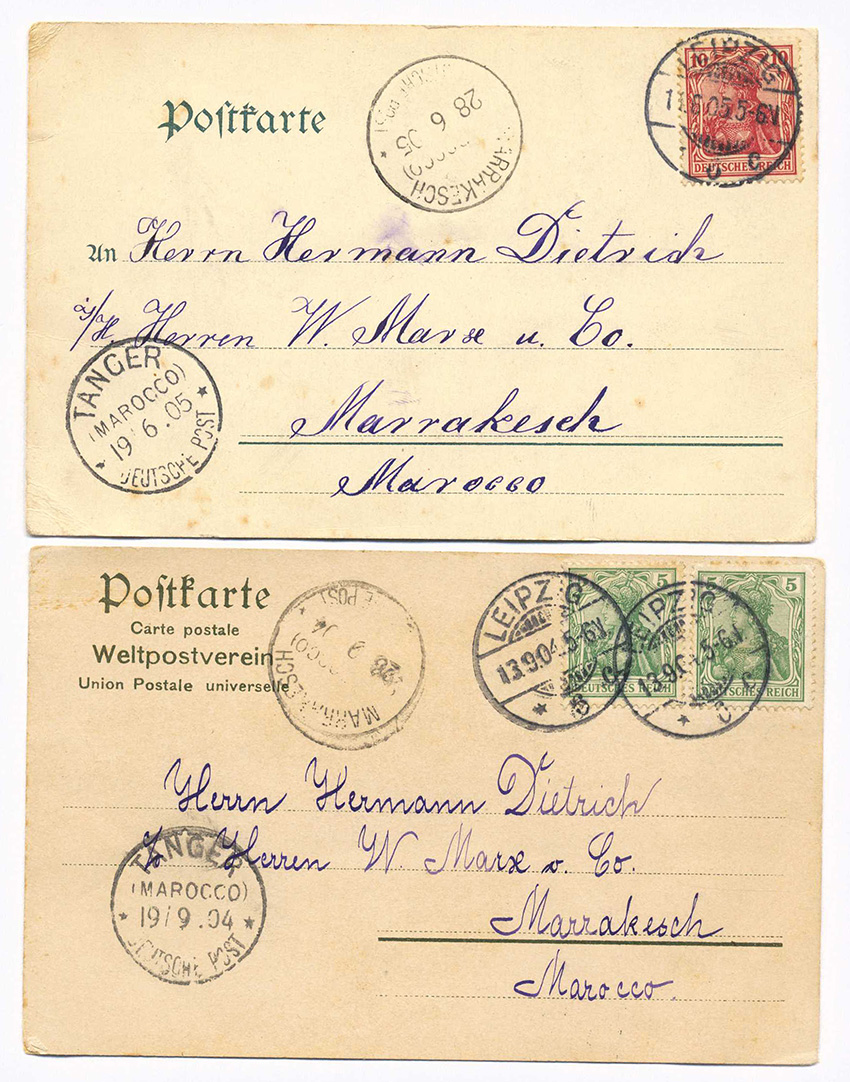 Postkarte
MARRAKESCH
DEUTSCHE POST
28 6 05
10 10
DEUTSCHES REICH
LEIPZIG
5-6N
An Herrn Hermann Dietrich
Herren W. Marx u. Co.
Marrakesch
Marocco
TANGER
(MAROCCO)
19/6.05
DEUTSCHE POST
Postkarte
Carte postale
Weltpostverein
Union Postale universelle
MARRAKESCH
5
DEUTSCHES REICH
5 5
DEUTSCHES REICH
LEIPZIG
13.9.04.5-6N
LEIPZIG
13.9.04.5-6N
Herrn Hermann Dietrich
Herren W. Marx v. Co.
Marrakesch
Marocco.
TANGER
(MAROCCO)
19/9.04
DEUTSCHE POST